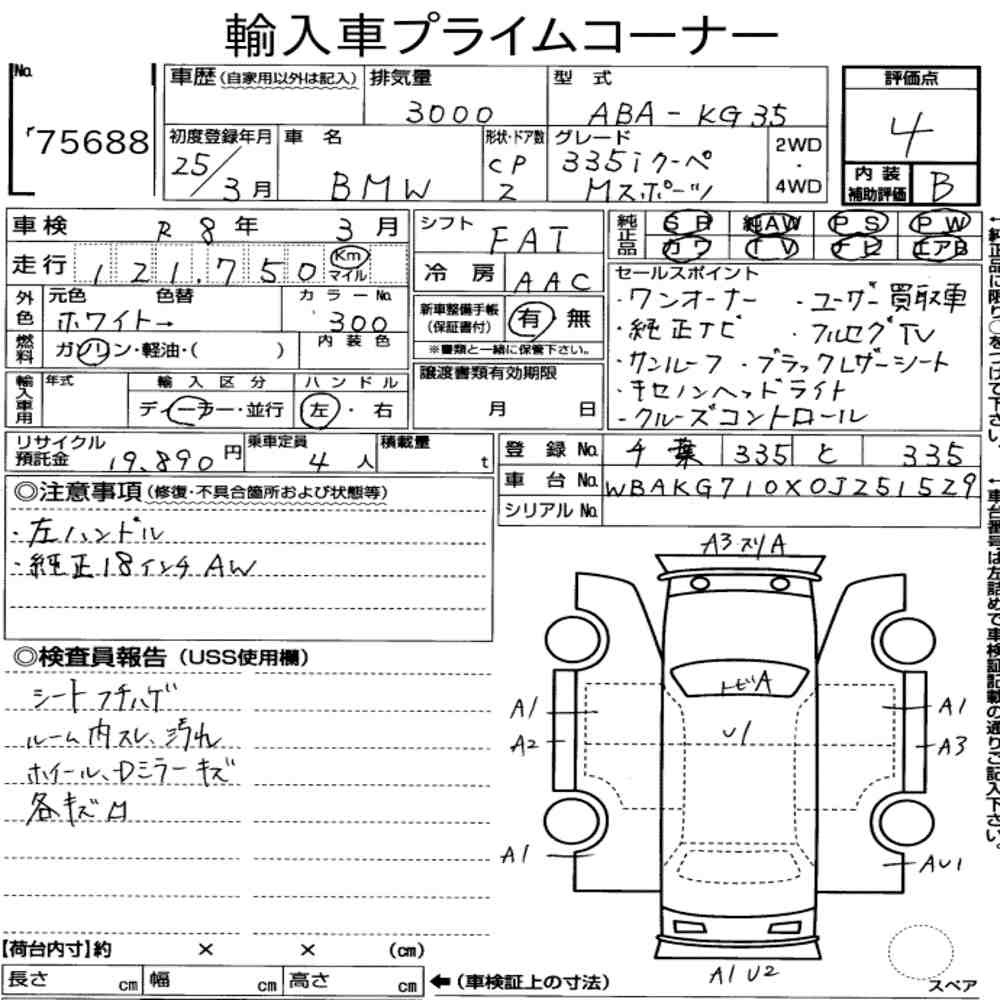 輸入車プライムコーナー
No.
75688
車歴(自家用以外は記入)
排気量
3000
型 式
ABA-KG35
評価点
4
内装補助評価
B
初度登録年月
25/3月
車 名
BMW
形状・ドア数
CP
2
グレード
335iクーペ
Mスポーツ
2WD
・
4WD
車検
R 8年 3月
走行
121,750
Km
マイル
シフト
FAT
冷 房
AAC
純正品
SR 純AW PS PW
カワ TV ナビ エアB
外色
元色 色替
ホワイト→
カラーNo.
300
燃料
ガソリン・軽油・( )
内装色
新車整備手帳
(保証書付)
有 無
※書類と一緒に保管下さい。
セールスポイント
・ワンオーナー ・ユーザー買取車
・純正ナビ ・フルセグTV
・サンルーフ ・ブラックレザーシート
・キセノンヘッドライト
・クルーズコントロール
輸入車用
年式
輸入区分
ディーラー・並行
ハンドル
左・右
譲渡書類有効期限
月 日
リサイクル
預託金
19,890円
乗車定員
4人
積載量
t
登録No.
千葉 335 と 335
車台No.
WBAKG710X0JZ51529
シリアルNo.
◎注意事項(修復・不具合箇所および状態等)
・左ハンドル
・純正18インチAW
◎検査員報告(USS使用欄)
シートフチハゲ
ルーム内スレ、汚れ
ホイール、Dミラーキズ
各キズロ
A3 スリA
トビA
U1
A1
A2
A1
A3
A1
AU1
A1 U2
スペア
【荷台内寸】約 × × (cm)
長さ cm 幅 cm 高さ cm
←(車検証上の寸法)
←純正品に限り○をつけて下さい。
←車台番号は左詰めで車検証記載の通りご記入下さい。